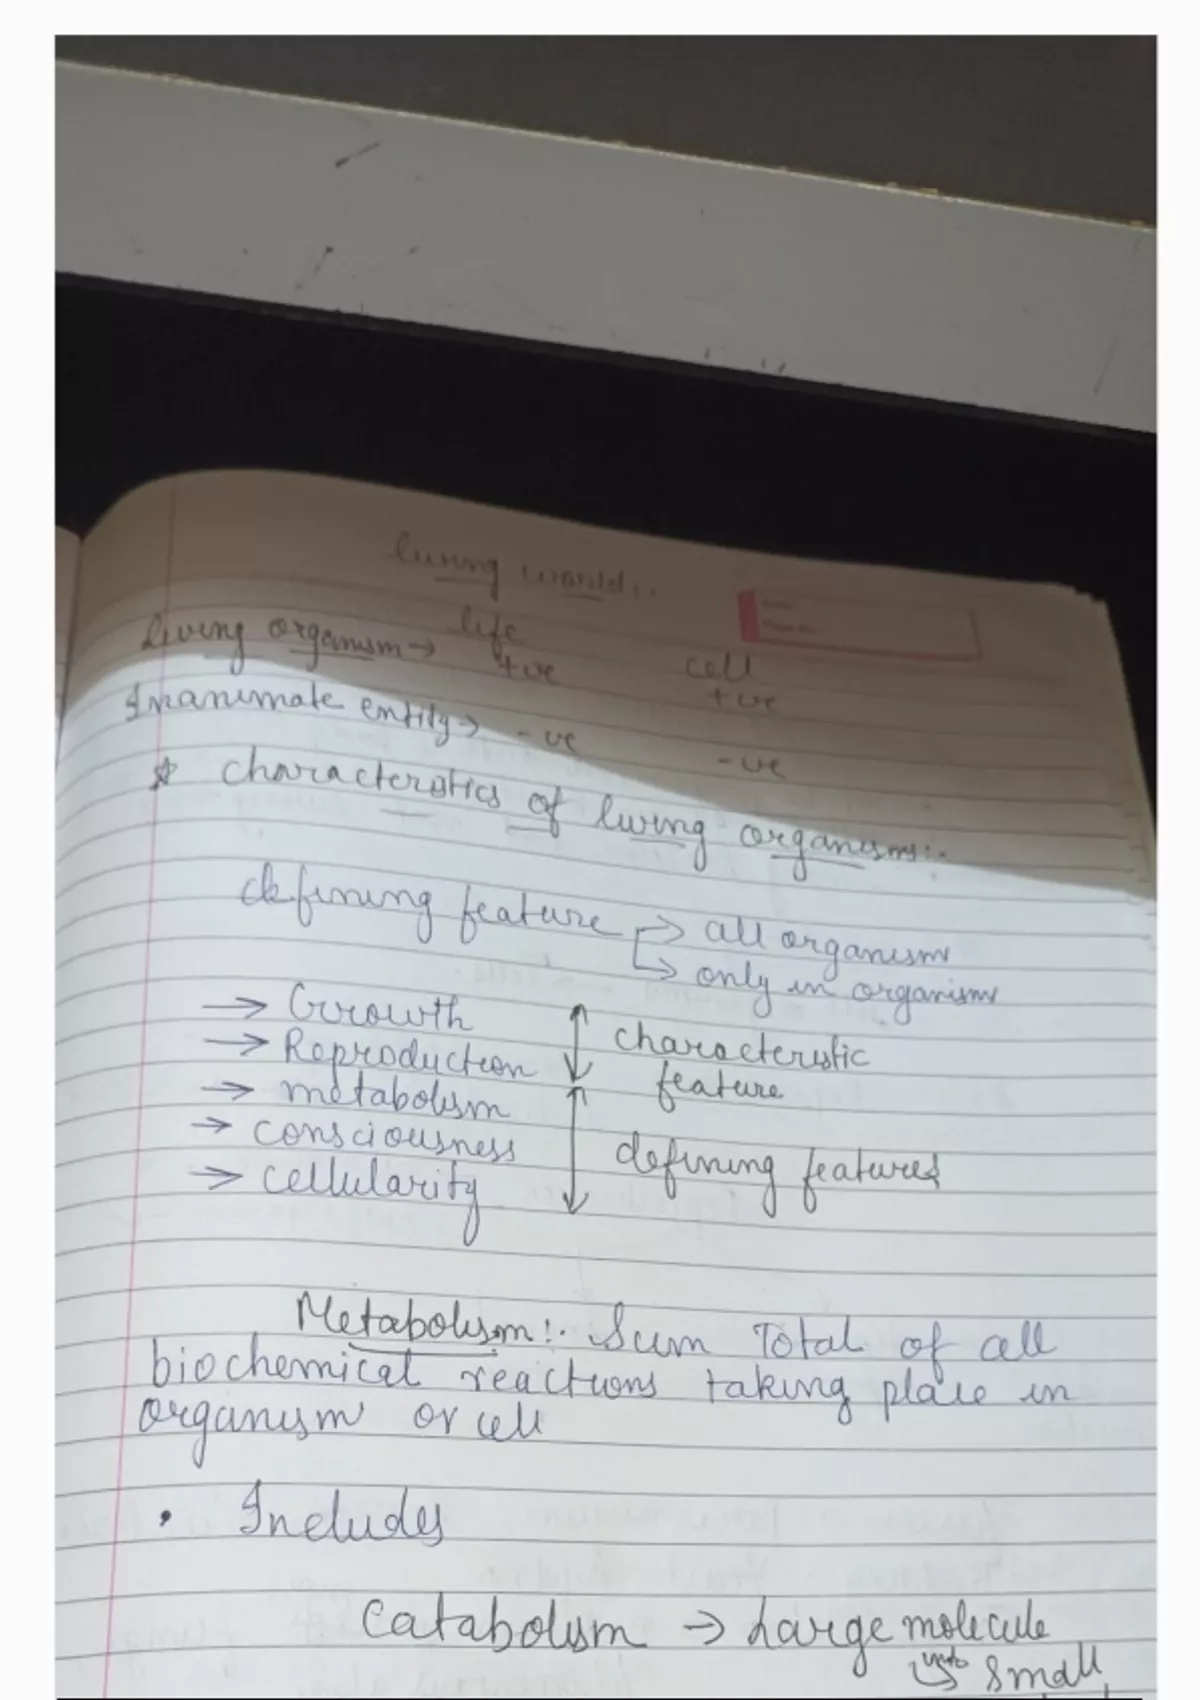 living world:.
life cell
living organism → +ve +ve
Inanimate entity → -ve -ve
☆ characteristics of living organisms:.
defining feature → all organism
↳ only in organism
→ Growth
→ Reproduction
characteristic feature
→ metabolism
→ consciousness
→ cellularity
defining features
Metabolism:. Sum Total of all
biochemical reactions taking place in
organism or cell
• Includes
Catabolism → Large molecule
into
↳ small